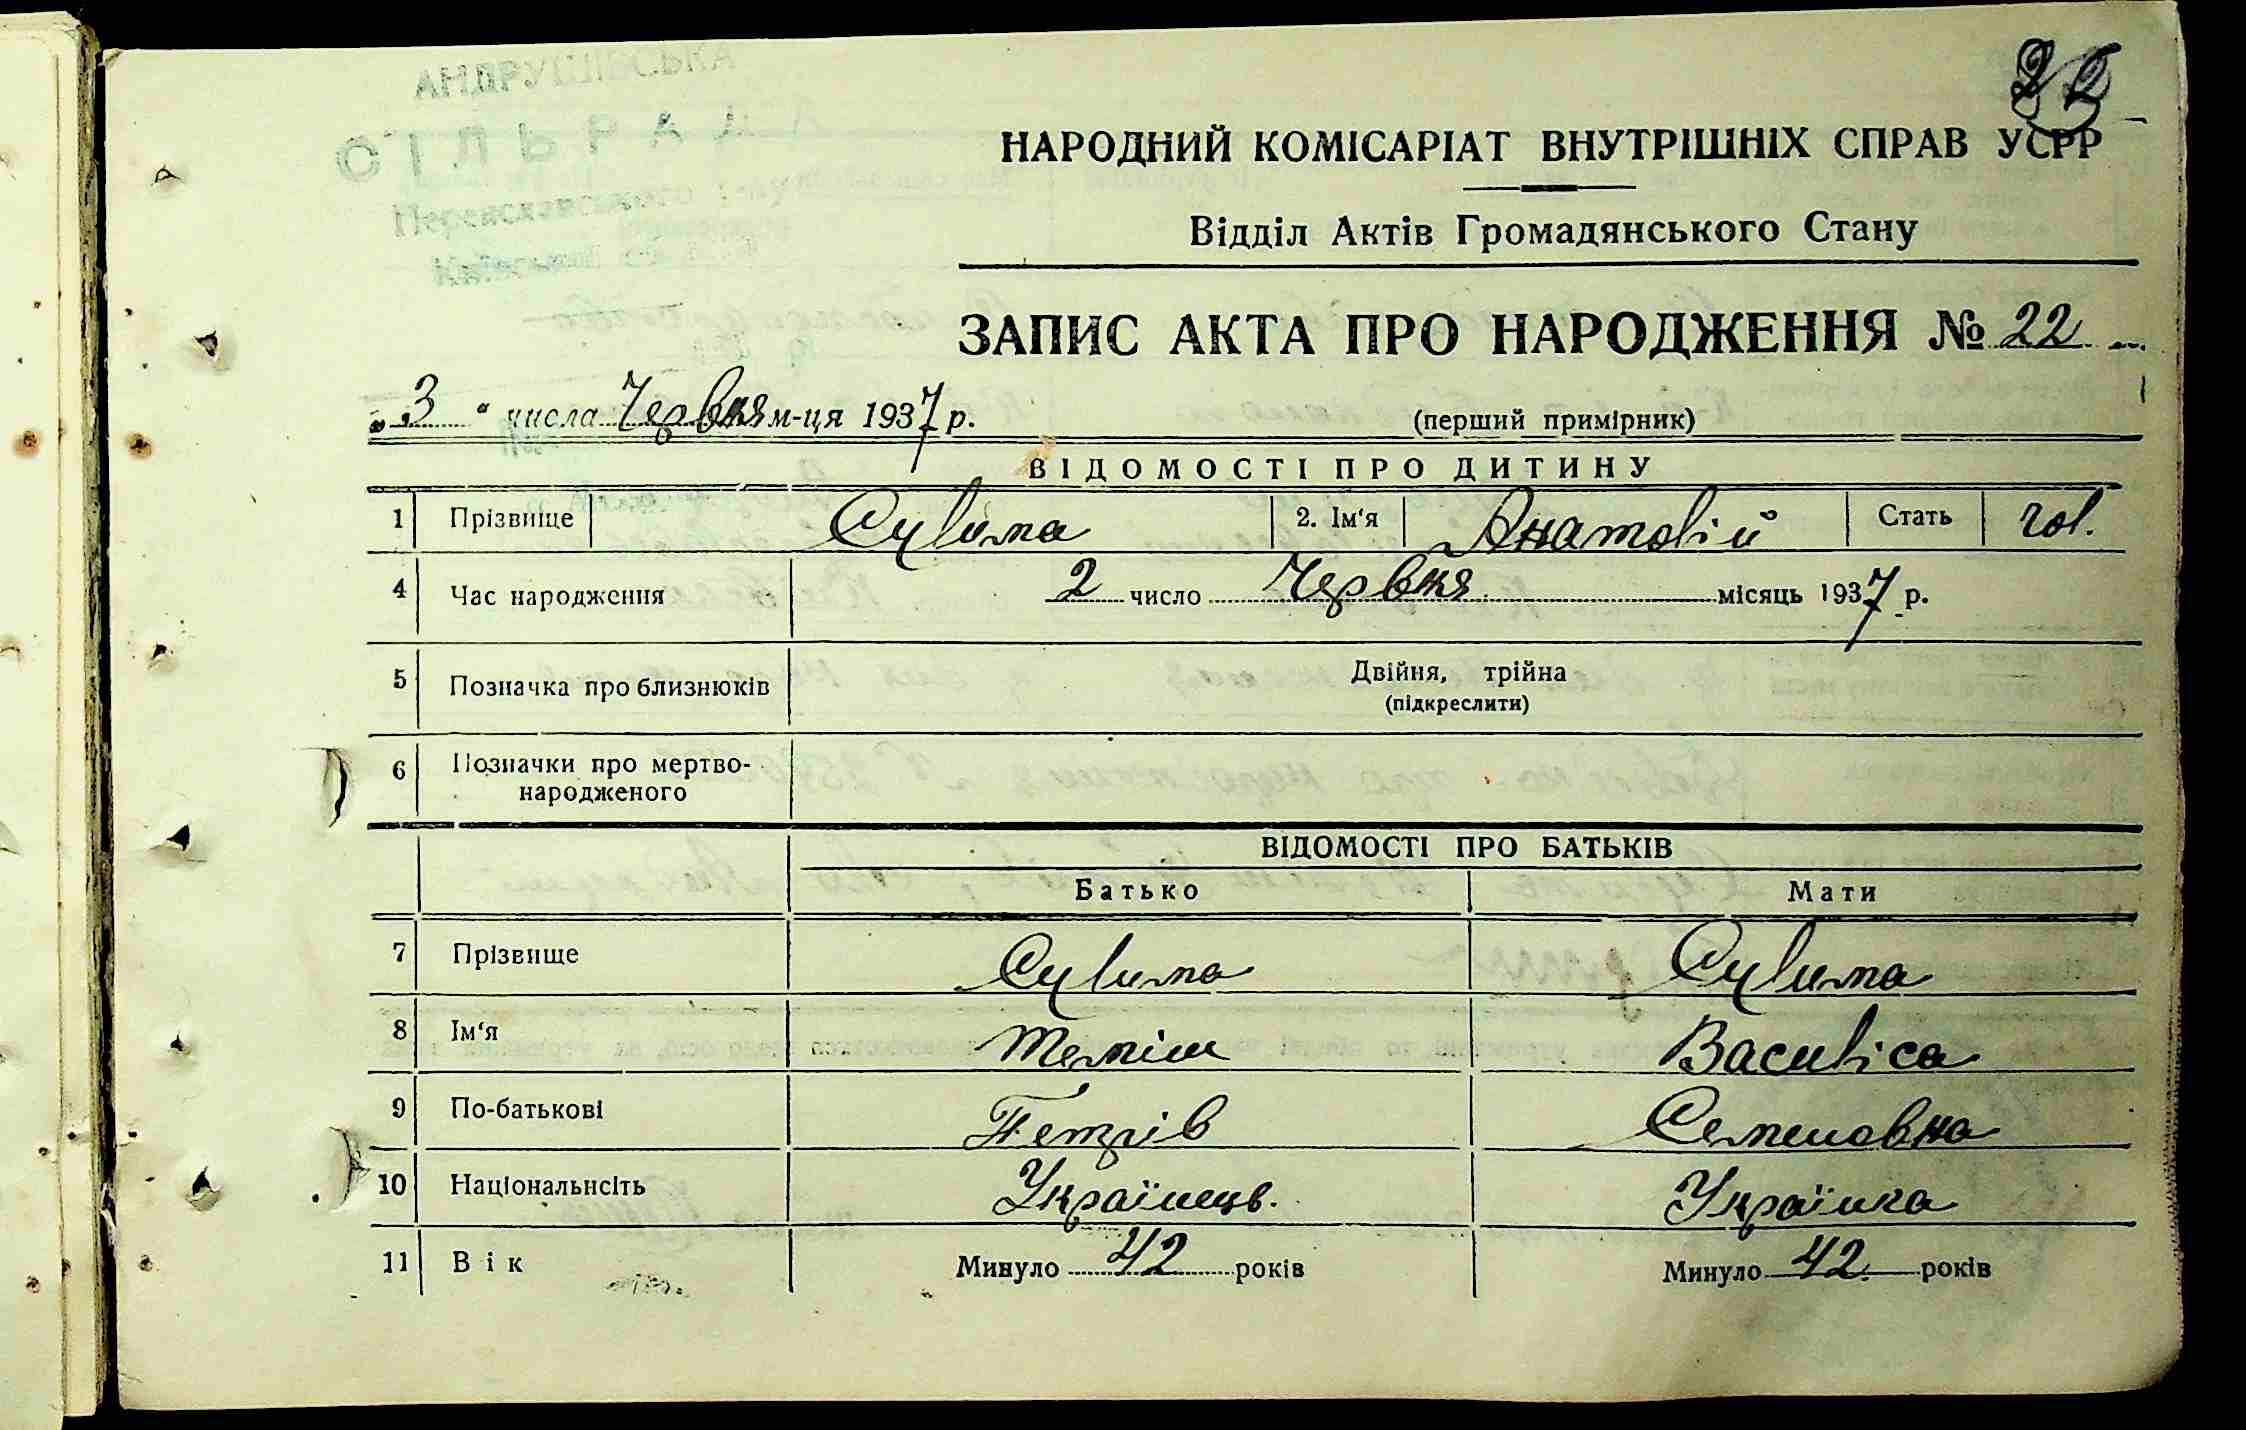 АНДРУШІВСЬКА
СІЛЬРАДА
Переяславського р-ну
22
НАРОДНИЙ КОМІСАРІАТ ВНУТРІШНІХ СПРАВ УСРР
Відділ Актів Громадянського Стану
ЗАПИС АКТА ПРО НАРОДЖЕННЯ № 22
„3“ числа Червня м-ця 1937 р.
(перший примірник)
ВІДОМОСТІ ПРО ДИТИНУ
1 Прізвище Сулима 2. Ім'я Анатолій Стать чол.
4 Час народження 2 число Червня місяць 1937 р.
5 Позначка про близнюків Двійня, трійна
(підкреслити)
6 Позначки про мертво-
народженого
ВІДОМОСТІ ПРО БАТЬКІВ
Батько Мати
7 Прізвище Сулима Сулима
8 Ім'я Василіса
9 По-батькові Петрів Семеновна
10 Національнсіть Українець. Українка
11 Вік Минуло 42 років Минуло 42 років